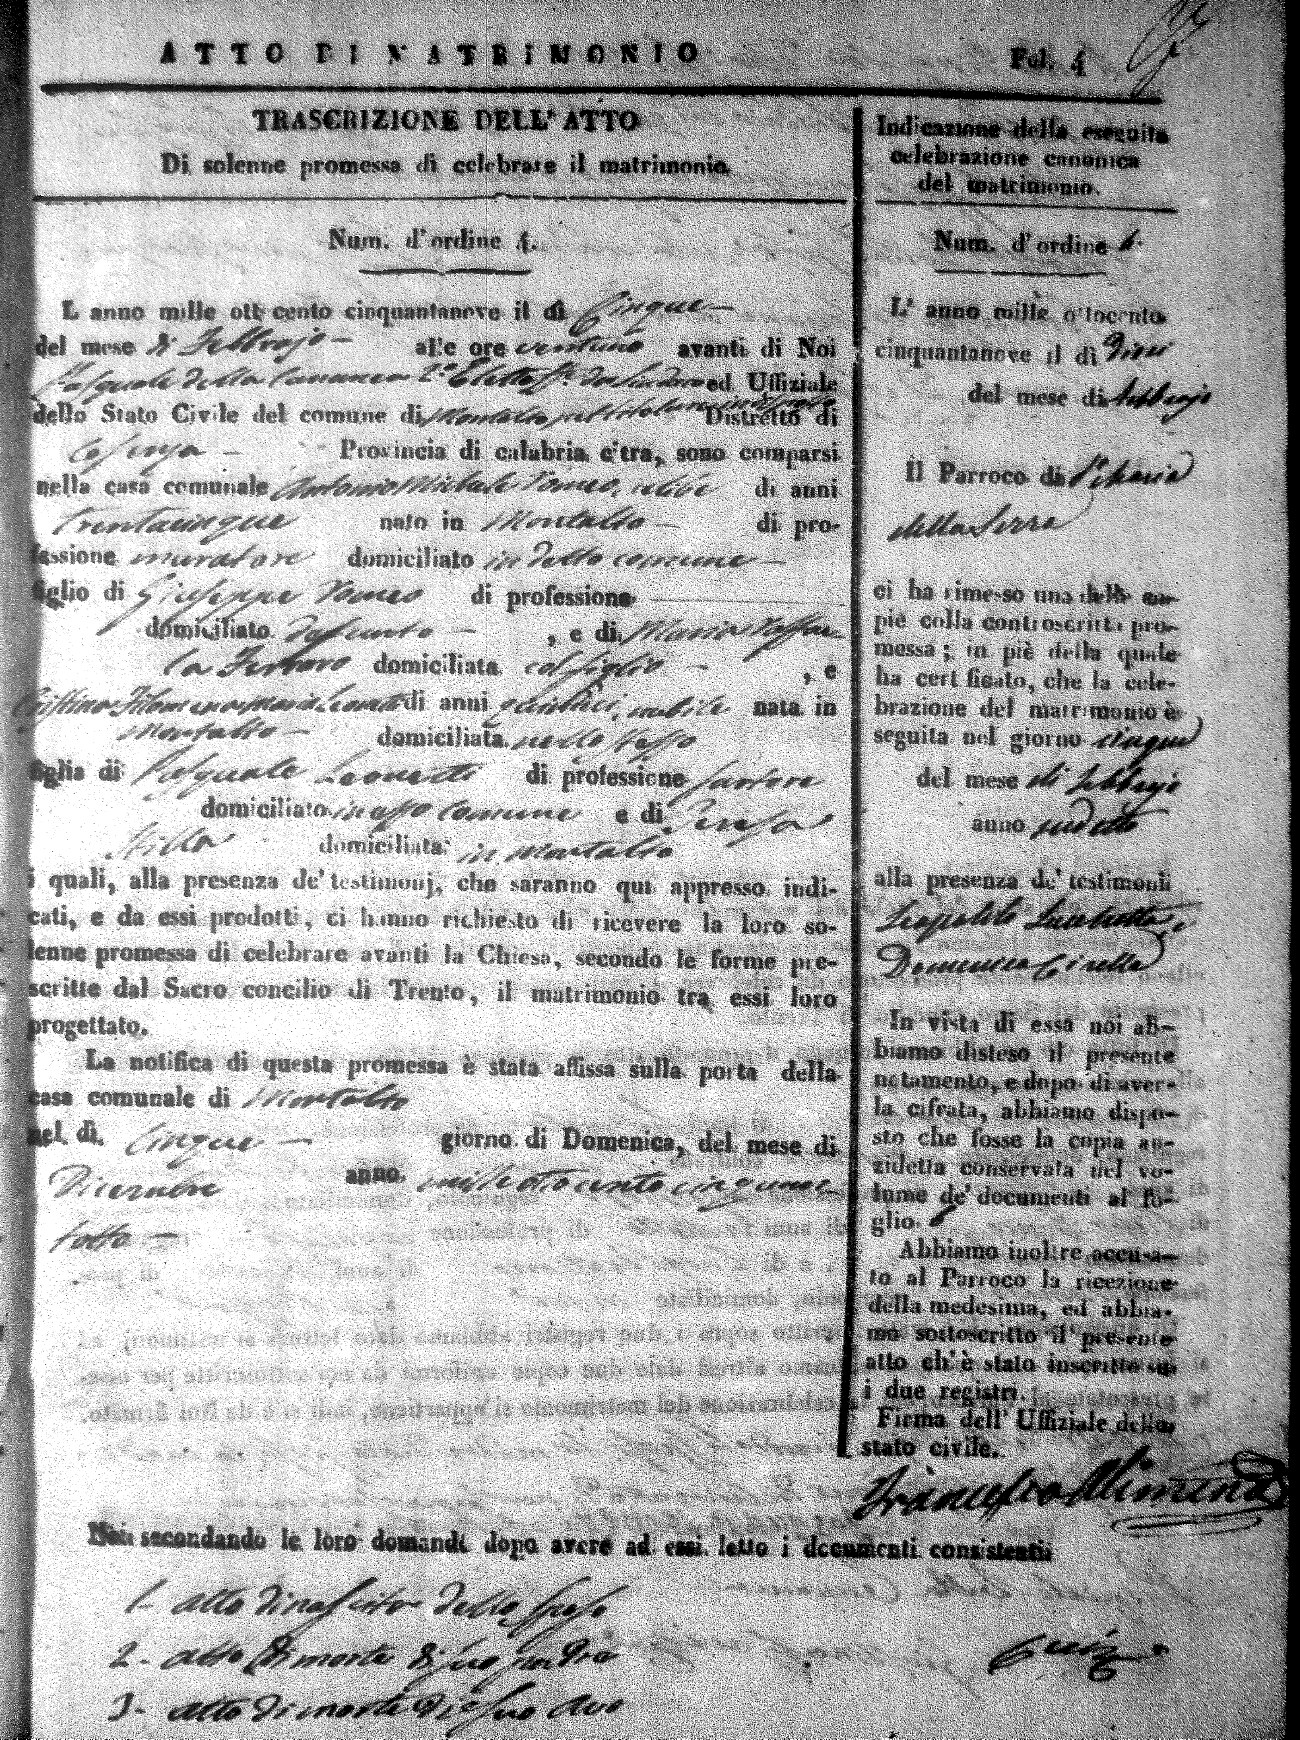 ATTO DI MATRIMONIO
Fol. 4
TRASCRIZIONE DELL'ATTO
Di solenne promessa di celebrare il matrimonio
Num. d'ordine 4.
L'anno mille ottocento cinquantanove il dì Cinque
del mese di Febbrajo alle ore ventuno avanti di Noi
Pasquale della Cananea 2° Eletto ff. da Sindaco ed Uffiziale
dello Stato Civile del comune di Montalto Distretto di
Cosenza Provincia di calabria citra, sono comparsi
nella casa comunale Antonio Michele Tomeo, celibe di anni
trentacinque nato in Montalto di pro-
fessione muratore domiciliato in detto comune
figlio di Giuseppe Tomeo di professione
domiciliato defunto, e di Maria
domiciliata col figlio, e
di anni quindici, nubile nata in
Montalto domiciliata nello stesso
figlia di Pasquale Leonetti di professione sartore
domiciliato in esso comune e di Teresa
domiciliata in Montalto
i quali, alla presenza de' testimonj, che saranno qui appresso indi-
cati, e da essi prodotti, ci hanno richiesto di ricevere la loro so-
lenne promessa di celebrare avanti la Chiesa, secondo le forme pre-
scritte dal Sacro concilio di Trento, il matrimonio tra essi loro
progettato.
La notifica di questa promessa è stata affissa sulla porta della
casa comunale di Montalto
nel dì Cinque giorno di Domenica, del mese di
Dicembre anno mille otto cento cinquant
totto
Noi secondando le loro domandi dopo avere ad essi letto i documenti consistenti
1- atto di nascita dello sposo
2- atto di morte di suo padre
3- atto di morte di suo avo
Indicazione della eseguita
celebrazione canonica
del matrimonio.
Num. d'ordine 4.
L'anno mille ottocento
cinquantanove il dì Dieci
del mese di Febbrajo
Il Parroco di S. Maria
della Serra
ci ha rimesso una delle co-
pie colla controscritta pro-
messa; in piè della quale
ha certificato, che la cele-
brazione del matrimonio è
seguita nel giorno cinque
del mese di Febbrajo
anno sudetto
alla presenza de' testimonii
Leopoldo
Domenico Cirella
In vista di essa noi ab-
biamo disteso il presente
notamento, e dopo di aver-
la cifrata, abbiamo dispo-
sto che fosse la copia an-
zidetta conservata nel vo-
lume de' documenti al fo-
glio.
Abbiamo inoltre accusa-
to al Parroco la ricezione
della medesima, ed abbia-
mo sottoscritto il presente
atto ch'è stato inscritto su
i due registri.
Firma dell'Uffiziale dello
stato civile.
Francesco Alimena